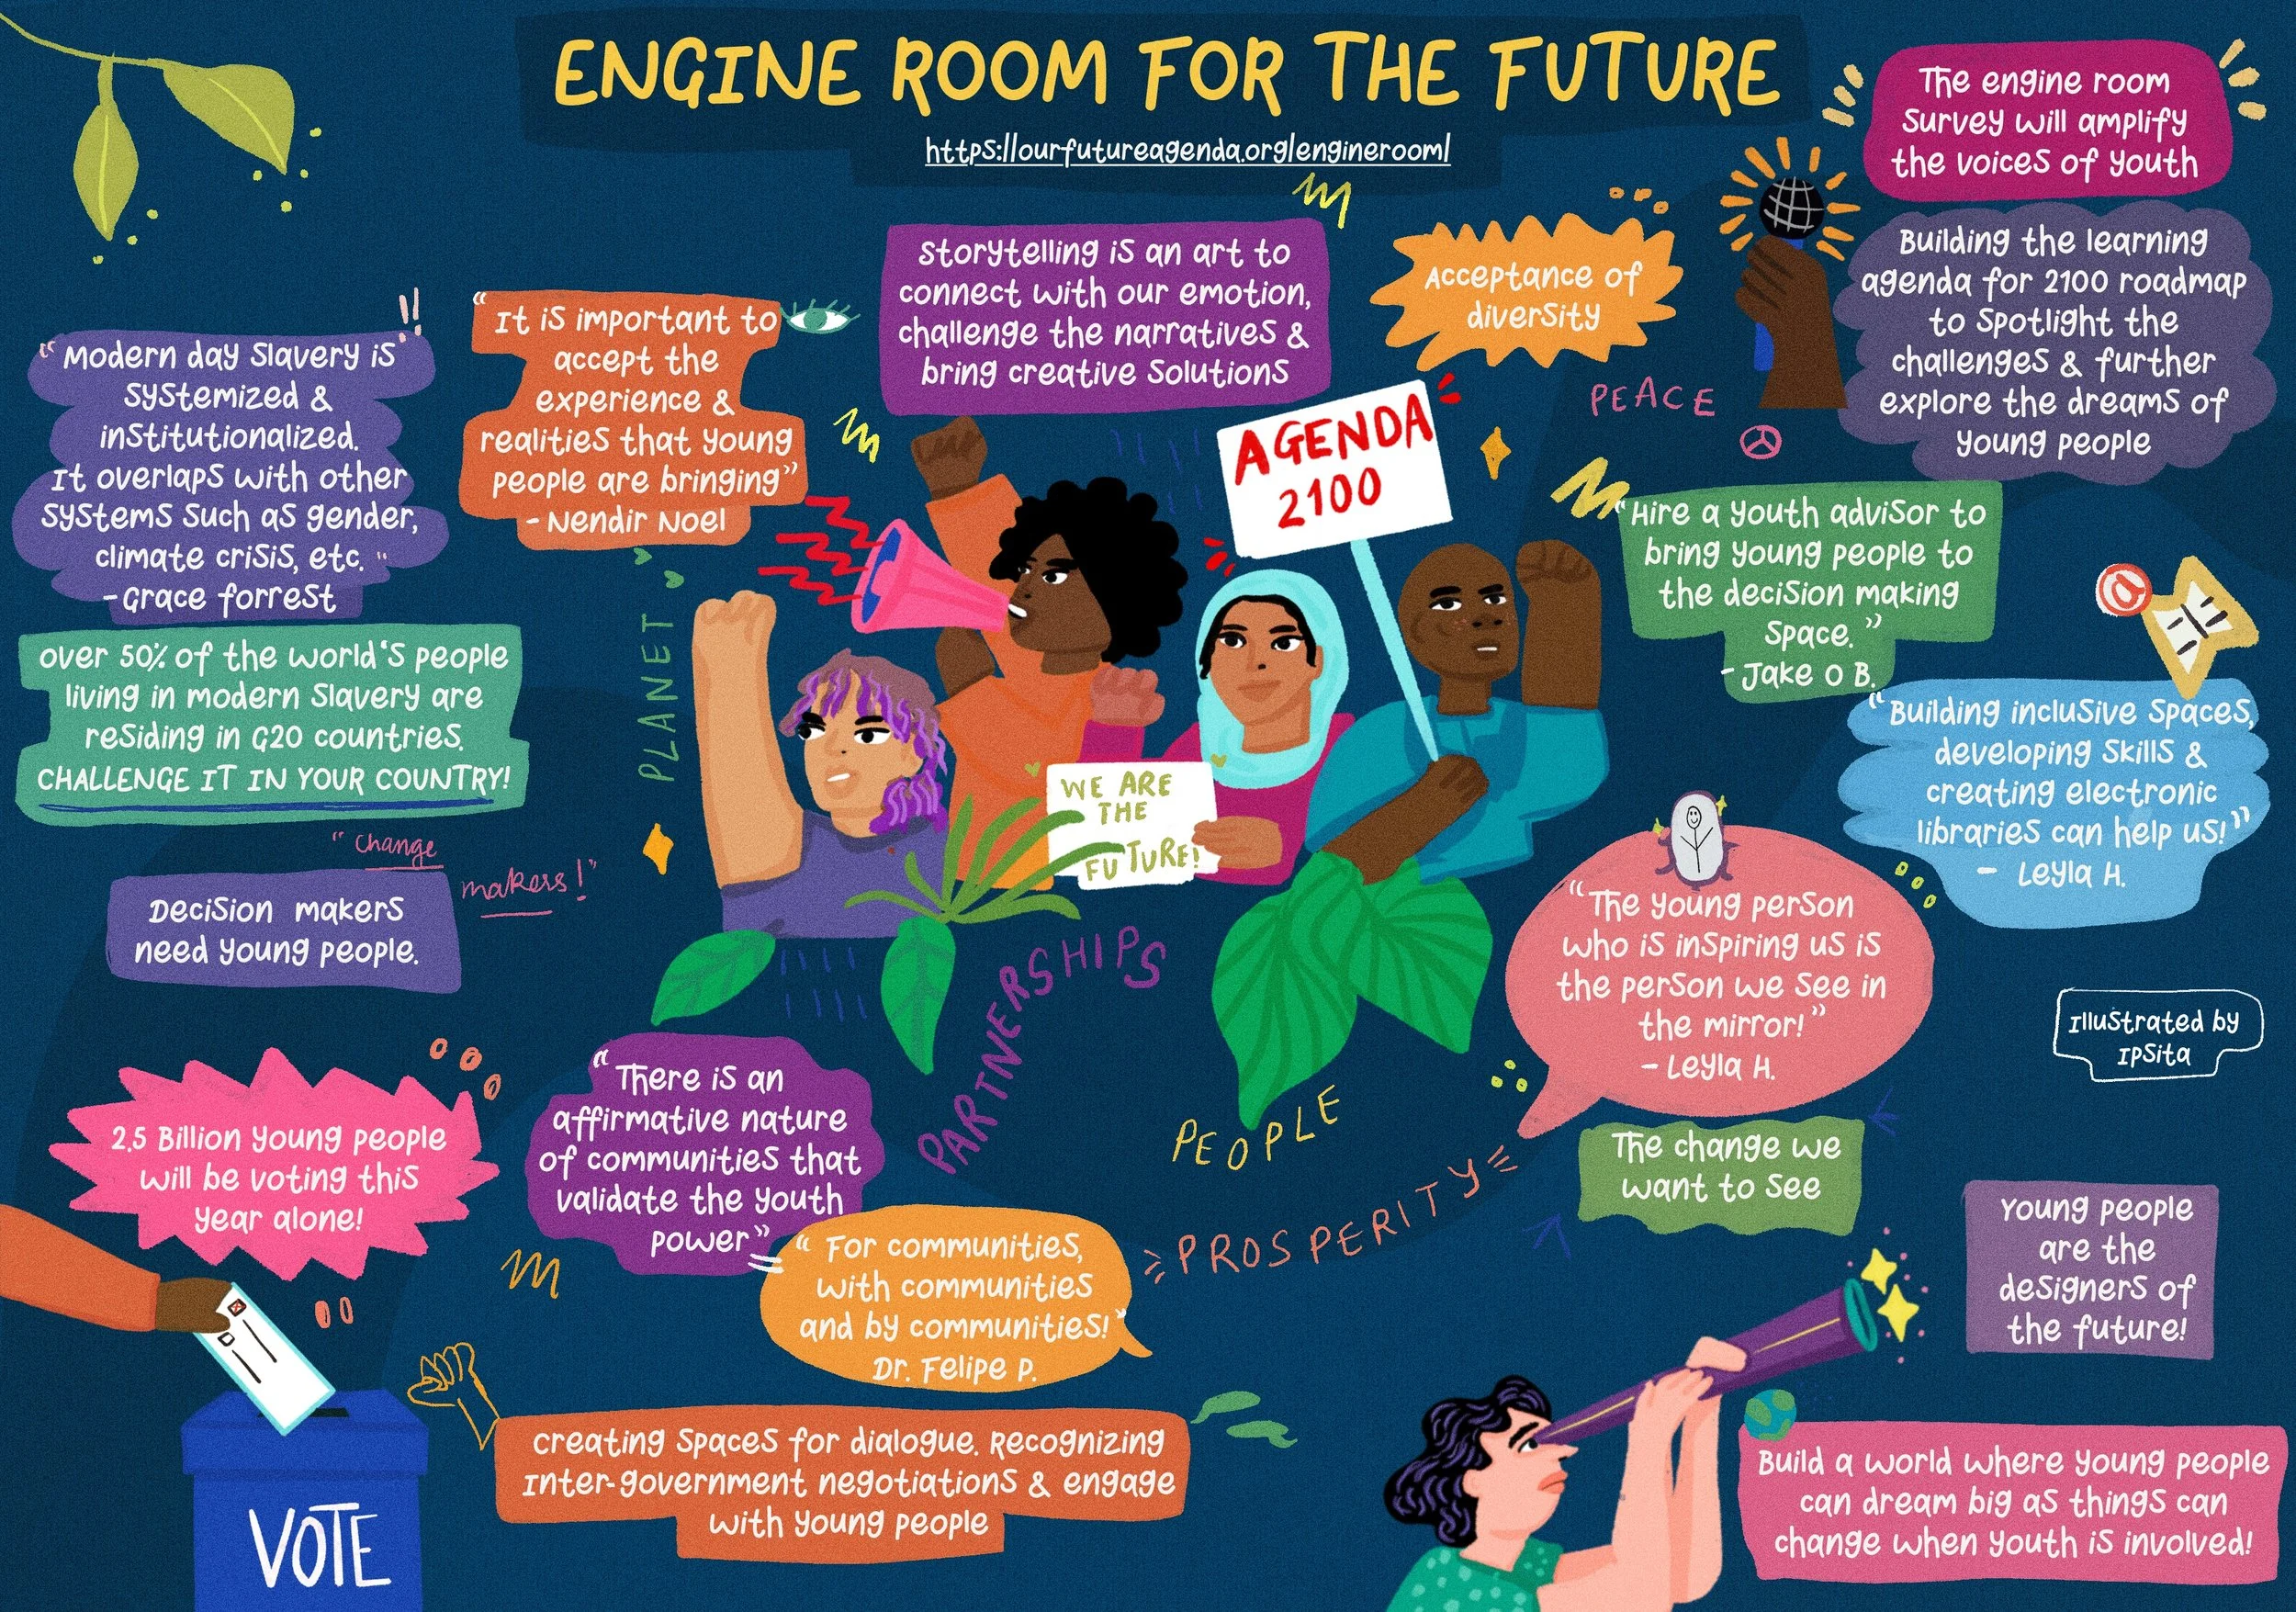 ENGINE ROOM FOR THE FUTURE
https://ourfutureagenda.org/engineroom/
The engine room
survey will amplify
the voices of youth
Storytelling is an art to
connect with our emotion,
challenge the narratives &
bring creative solutions
Acceptance of
diversity
Building the learning
agenda for 2100 roadmap
to spotlight the
challenges & further
explore the dreams of
young people
"It is important to
accept the
experience &
realities that young
people are bringing"
- Nendir Noel
"Modern day slavery is
systemized &
institutionalized.
It overlaps with other
systems such as gender,
climate crisis, etc."
- Grace forrest
PEACE
AGENDA
2100
"Hire a youth advisor to
bring young people to
the decision making
space."
- Jake O B.
PLANET
over 50% of the world's people
living in modern slavery are
residing in G20 countries.
CHALLENGE IT IN YOUR COUNTRY!
"Building inclusive spaces,
developing skills &
creating electronic
libraries can help us!"
- Leyla H.
WE ARE
THE
FUTURE!
"change
makers!"
Decision makers
need young people.
"The young person
who is inspiring us is
the person we see in
the mirror!"
- Leyla H.
PARTNERSHIPS
Illustrated by
Ipsita
2.5 Billion young people
will be voting this
year alone!
"There is an
affirmative nature
of communities that
validate the youth
power"
PEOPLE
PROSPERITY
The change we
want to see
Young people
are the
designers of
the future!
"For communities,
with communities
and by communities!"
Dr. Felipe P.
VOTE
creating spaces for dialogue. Recognizing
Inter-government negotiations & engage
with young people
Build a world where young people
can dream big as things can
change when youth is involved!